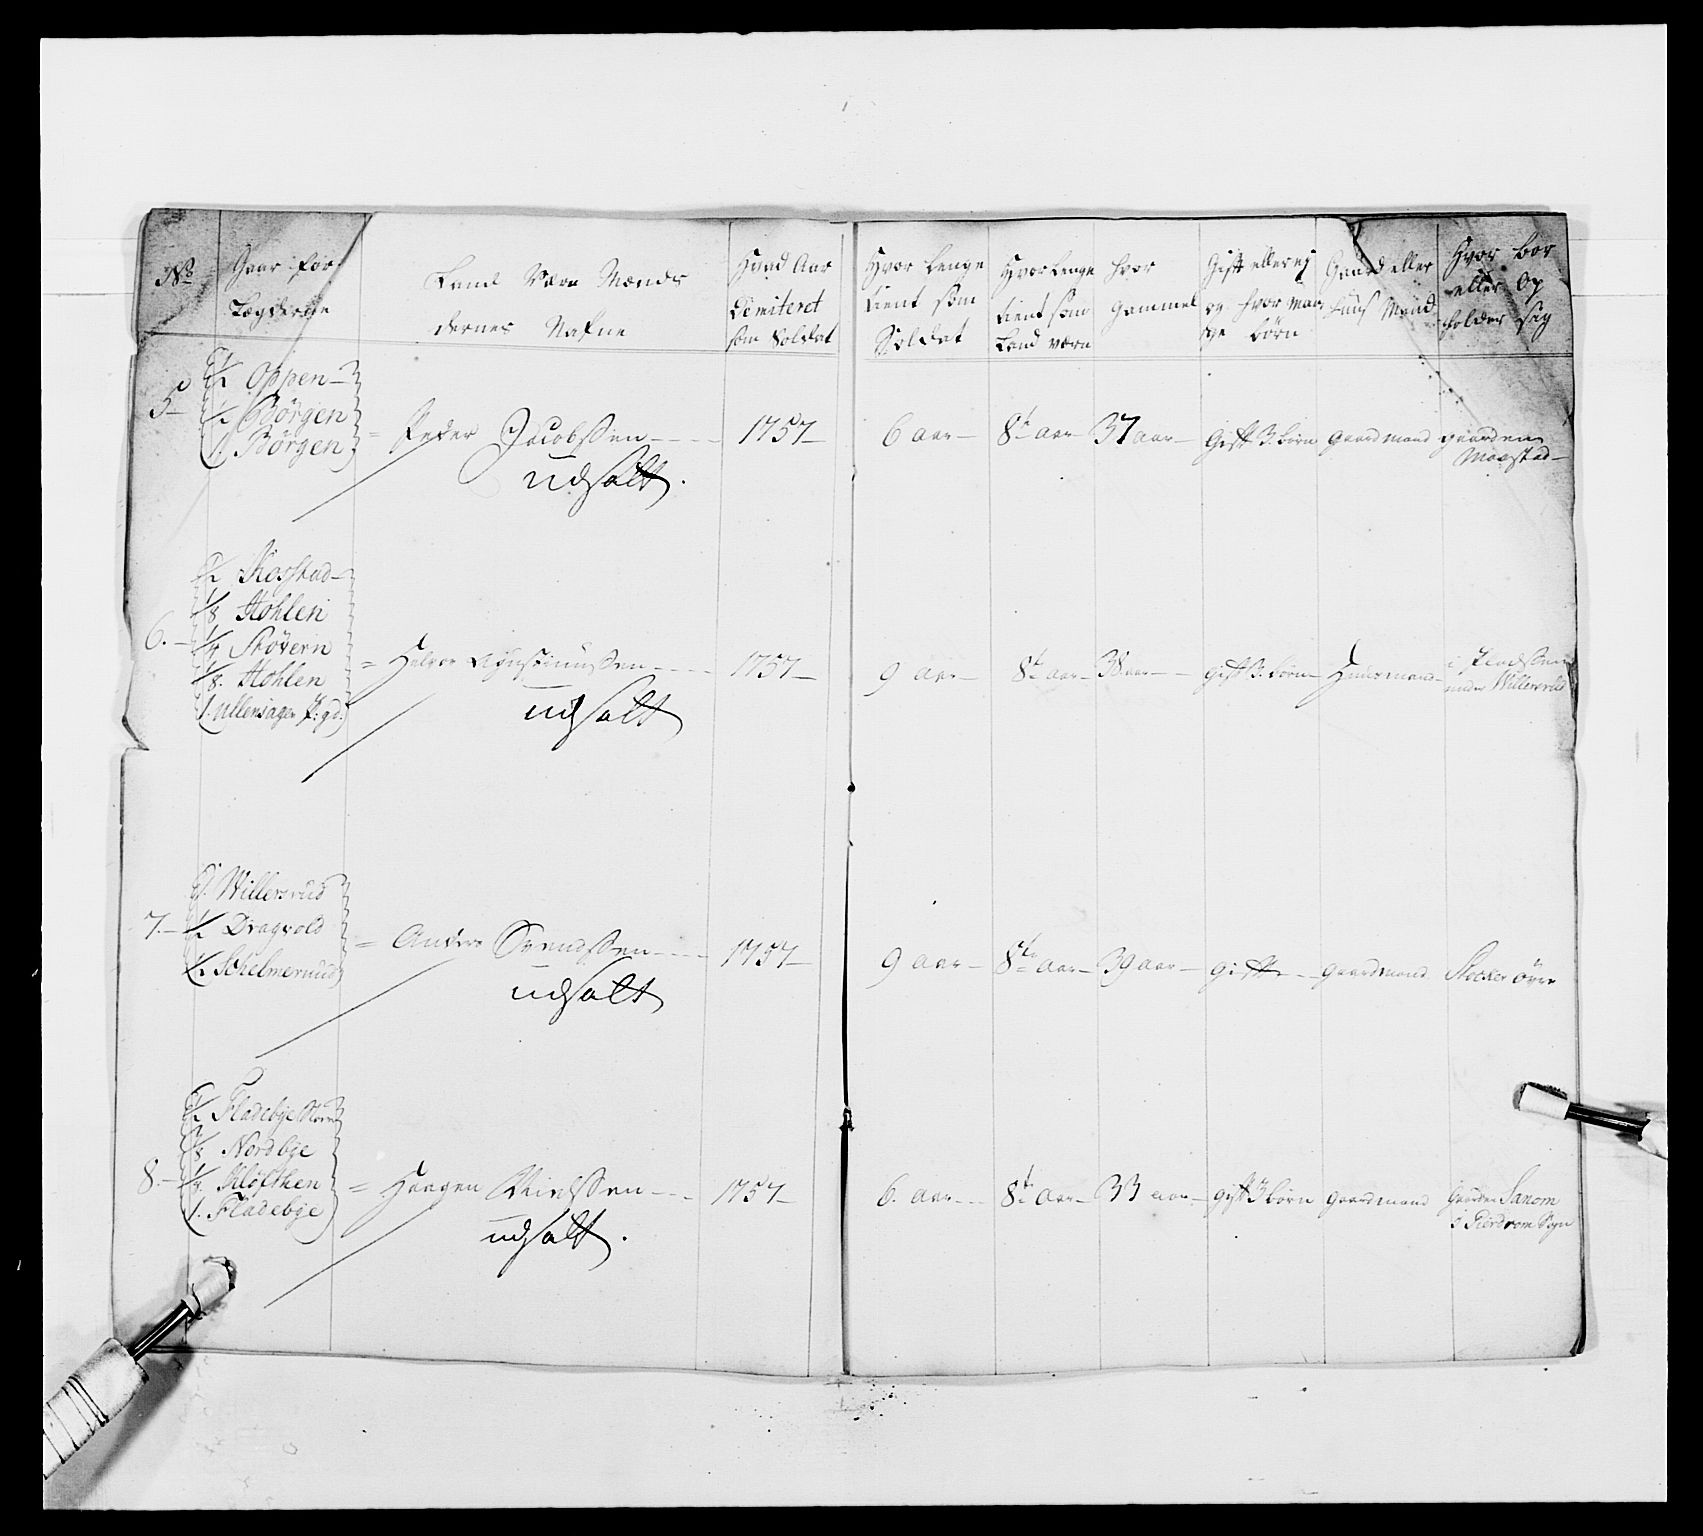 No
Gaar for
Lægderne
Land Værn Mænds
dernes Nafne
Hvad Aar
Demiteret
som Soldat
Hvor Lenge
tient som
Soldat
Hvor Lenge
tient som
Land værn
hvor
Gammel
Gift eller ej
og hvor man
ge børn
Gaard eller
Huus Mand
Hvor boer
eller Op
holder sig
5
1/2 Oppen
1/2 Börgen
1. Börgen
= Peder Jacobssen
udsatt.
1757
6 aar
8t aar
37 aar
Gift 3. børn
gaardmand
gaarden
Mogstad
6.
1/2 Kosstad
1/8 Hohlen
1/4 Skövern
1/8. Hohlen
1. Ullensager P:gd:
= Halvor Augustinussen
udsatt
1757
9 aar
8t aar
38 aar
gift 3. børn
Huusmand
under Willersrud
7.
1. Willersrud
1/2 Dragvold
1/2 Schelmerud
= Anders Svendssen
udsatt
1757
9 aar
8t aar
39 aar
gift
gaardmand
Stocker övre
8.
1/2 Fladebye Store
1/8 Nordbye
Klöfthen
1. Fladebye
= Haagen Nielssen
udsatt.
1757
6. aar
8t aar
33 aar
gift 3 børn
gaardmand
Gaarden Sanom
i Gierdrom Sogn